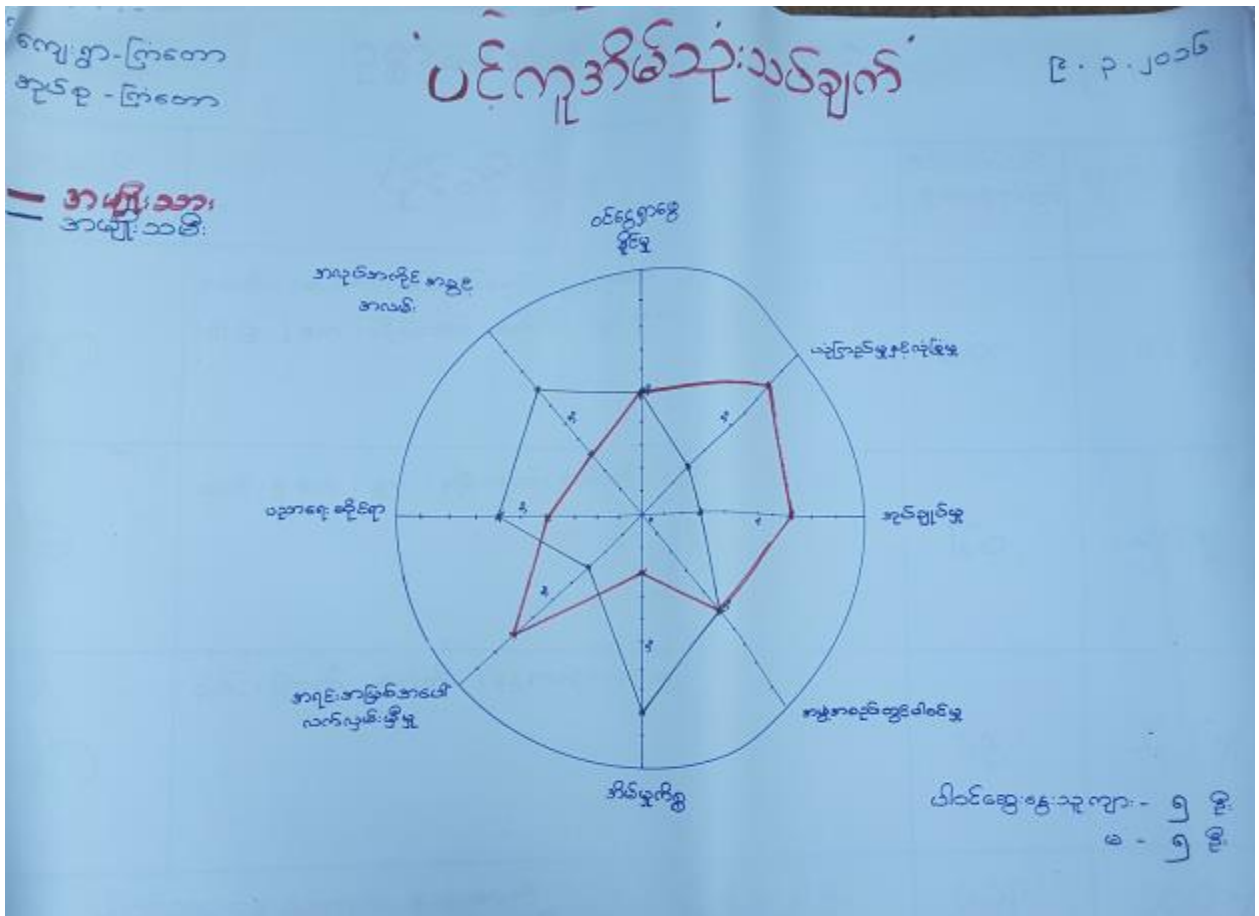 ကျေးရွာ-ကြံတော
အုပ်စု - ကြံတော
'ပင့်ကူအိမ်သုံးသပ်ချက်'
၉ . ၃ . ၂၀၁၆
အမျိုးသား
အမျိုးသမီး
ဝင်ငွေရှာဖွေ
နိုင်မှု
အလုပ်အကိုင် အခွင့်
အလမ်း
ယုံကြည်မှုနှင့်လုံခြုံမှု
ပညာရေးဆိုင်ရာ
အုပ်ချုပ်မှု
အရင်းအမြစ်အပေါ်
လက်လှမ်းမှီမှု
အဖွဲ့အစည်းတွင်ပါဝင်မှု
အိမ်မှုကိစ္စ
ပါဝင်ဆွေးနွေးသူကျား - ၅ ဦး
မ - ၅ ဦး